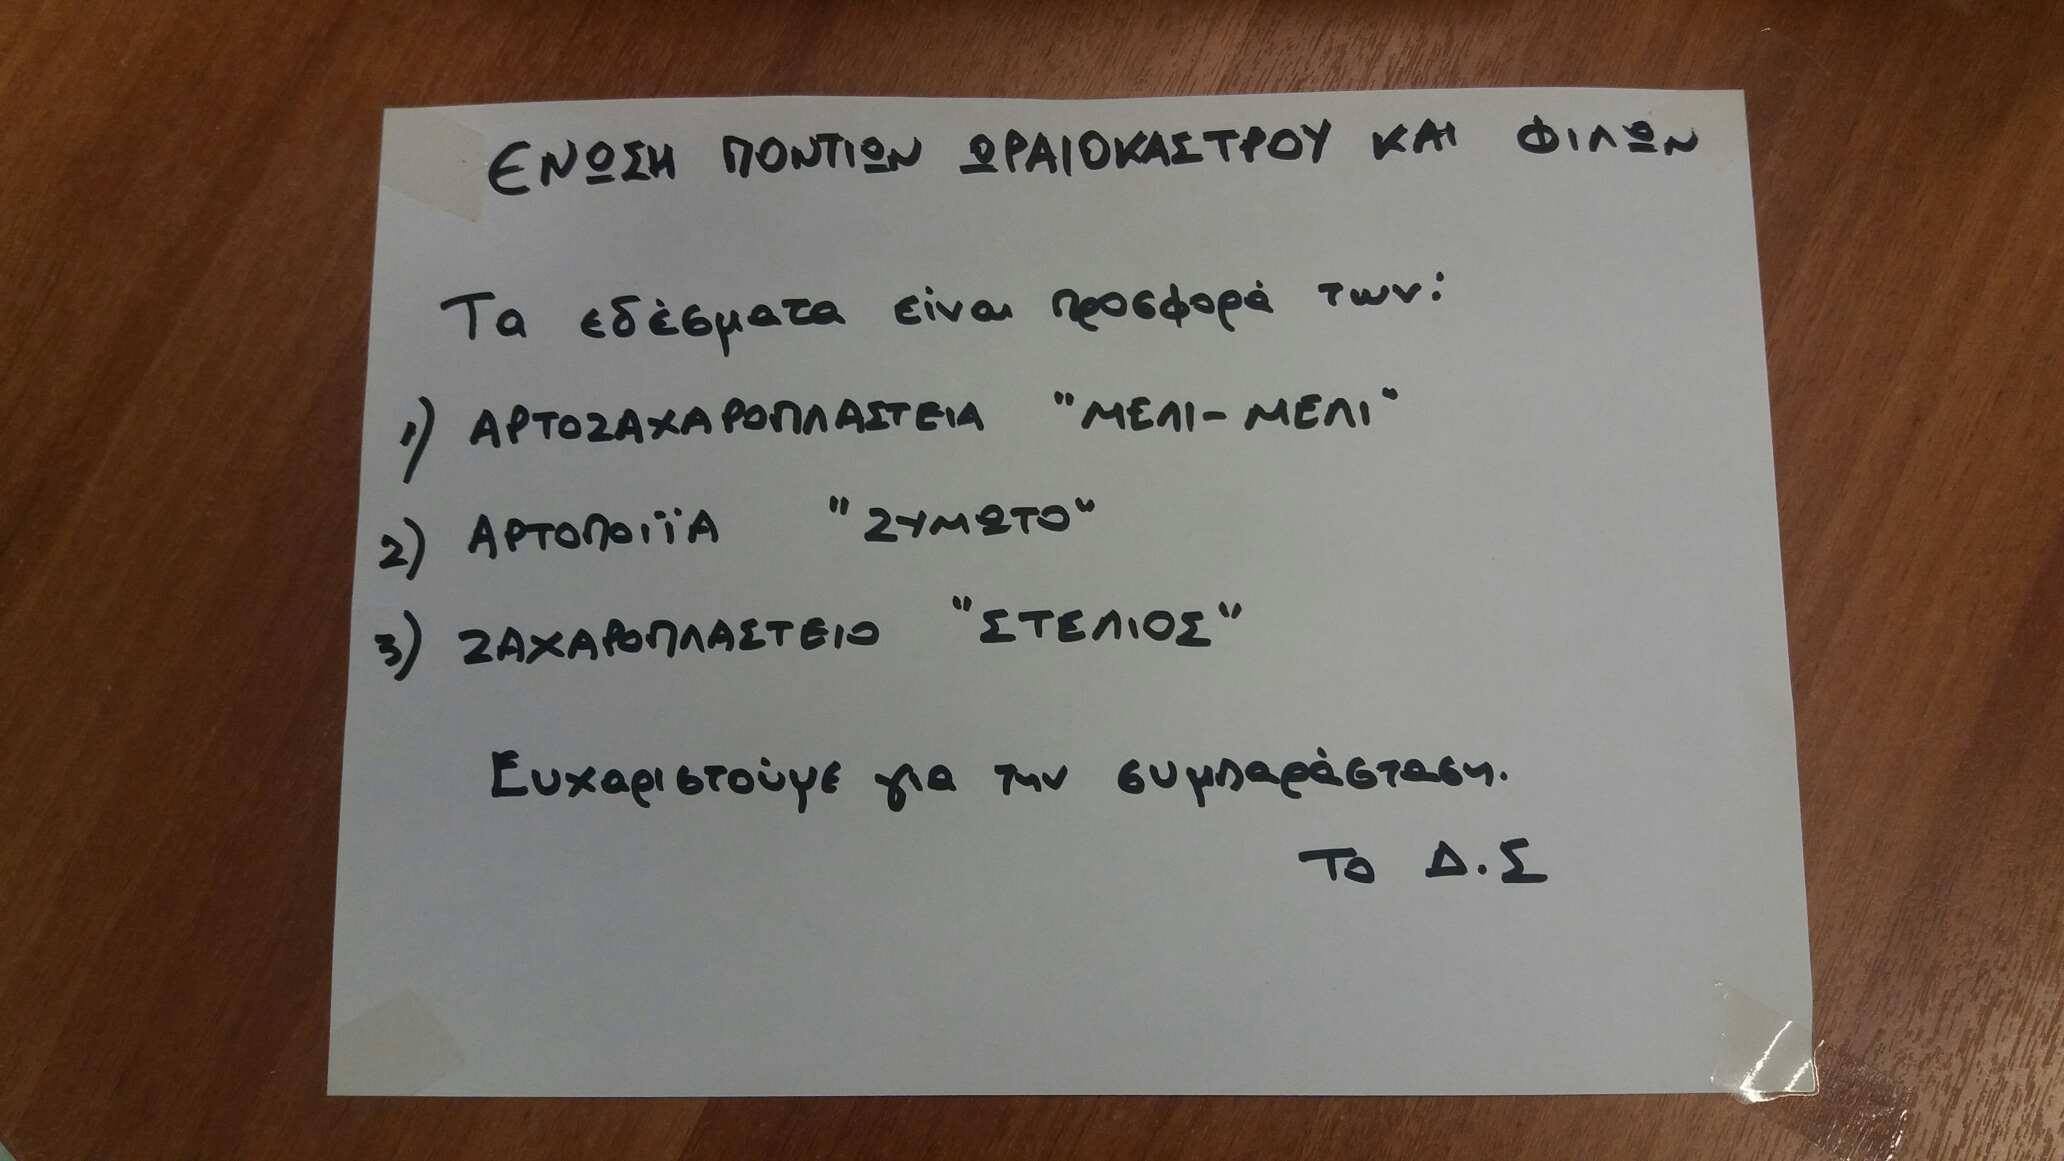 ΕΝΩΣΗ ΠΟΝΤΙΩΝ ΩΡΑΙΟΚΑΣΤΡΟΥ ΚΑΙ ΦΙΛΩΝ
Τα εδέσματα είναι προσφορά των:
1) ΑΡΤΟΖΑΧΑΡΟΠΛΑΣΤΕΙΑ "ΜΕΛΙ-ΜΕΛΙ"
2) ΑΡΤΟΠΟΙΪΑ "ΖΥΜΩΤΟ"
3) ΖΑΧΑΡΟΠΛΑΣΤΕΙΟ "ΣΤΕΛΙΟΣ"
Ευχαριστούμε για την συμπαράσταση.
Το Δ.Σ